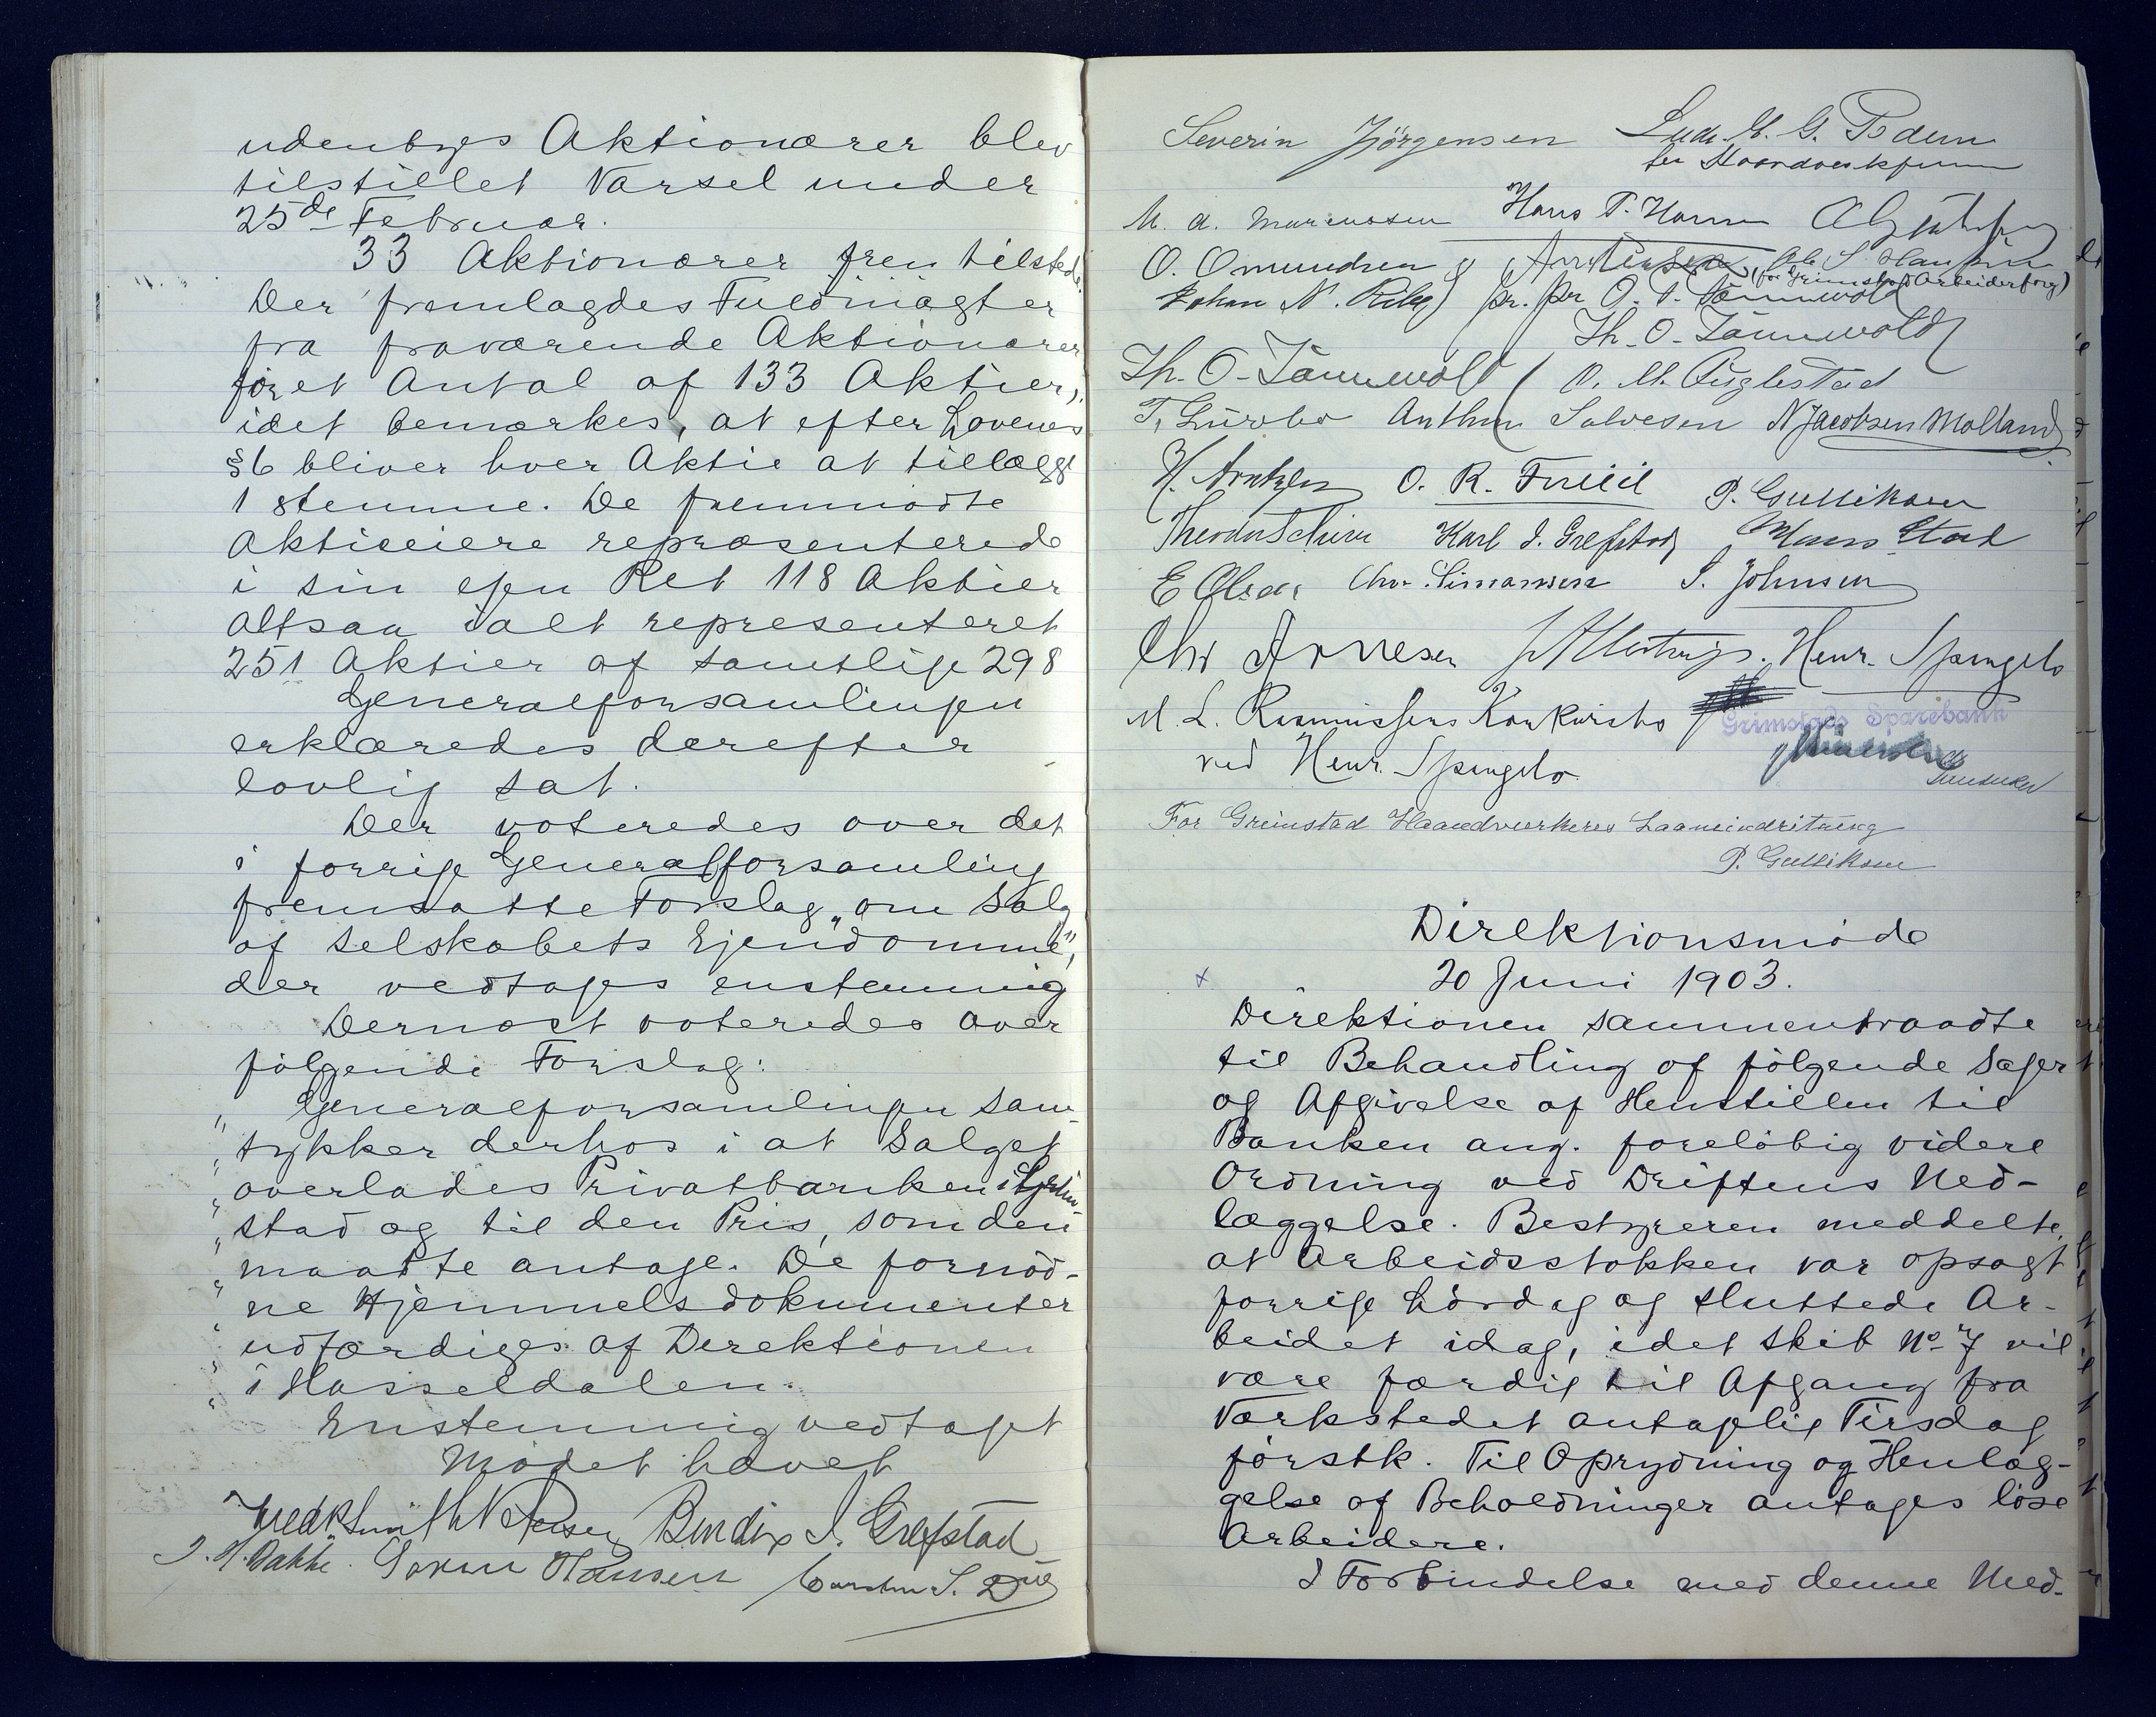 udenbyes Aktionærer blev
tilstillet Varsel under
25de Februar.
33 Aktionærer frem tilstede.
Der fremlagdes Fuldmagter
fra fraværende Aktionærer
for et Antal af 133 Aktier,
idet bemærkes, at efter Lovenes
§6 bliver hver Aktie at tillægge
1 stemme. De fremmødte
Aktieeiere repræsenterede
i sin egen Ret 118 Aktier
altsaa ialt representeret
251 Aktier af samtlige 298
Generalforsamlingen
erklæredes derefter
lovlig sat.
Der voteredes over det
i forrige Generalforsamling
fremsatte Forslag „om Salg
af Selskabets Ejendomme",
der vedtages enstemmig
Dernæst voteredes over
følgende Forslag:
„ Generalforsamlingen sam-
„ tykker derhos i at Salget
„ overlades Privatbanken i Grim-
„ stad og til den Pris, som den
„ maatte antage. De fornød-
„ ne Hjemmelsdokumenter
„ udfærdiges af Direktionen
„ i Hasseldalen.
Enstemmig vedtaget
Mødet hævet
Bendix J. Grefstad
J. H. Bakke. Søren Hansen Carsten S. Due
Severin Jørgensen Ludv. G. Pedersen
M. A. Marcussen Hans T. Hansen
O. Omundsen Ole S. Hansen
(for Grimstad Arbeiderforg)
Johan N. Riber pr. pr O. T. Tønnevold
Th. O. Tønnevold
Th. O. Tønnevold O. M. Fuglestad
Anthon Salvesen N Jacobsen Molland
H. Arntzen O. R. P. Gulliksen
Karl J. Grefstad
E Olsen Chr. Simonsen S. Johnsen
Chr Arnesen Henr. Spangelo
M. L. Rasmussens Konkursbo
Grimstads Sparebank
ved Henr. Spangelo
For Grimstad Haandværkeres Laaneindretning
P. Gulliksen
Direktionsmøde
20 Juni 1903.
Direktionen sammentraadte
til Behandling af følgende Sager
og Afgivelse af Henstillen til
Banken ang. foreløbig videre
Ordning ved Driftens Ned-
læggelse. Bestyreren meddelte,
at Arbeidsstokken var opsagt
forrige Lørdag og sluttede Ar-
beidet idag, idet Skib No 7 vil
være færdig til Afgang fra
Værkstedet antagelig Tirsdag
førstk. Til Oprydning og Henlæg-
gelse af Beholdninger antages løse
Arbeidere.
I Forbindelse med denne Med-